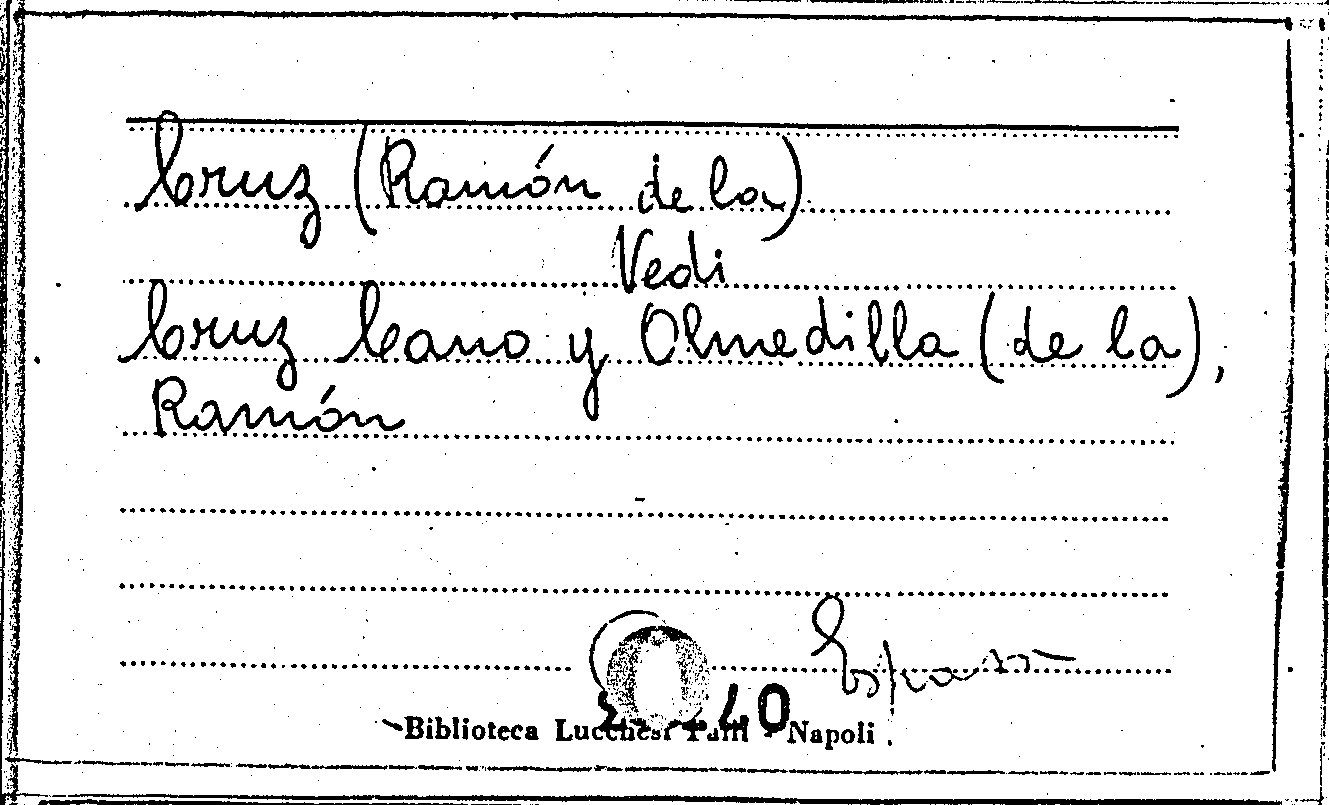 Cruz (Ramón de la)
Vedi
Cruz Cano y Olmedilla (de la),
Ramón
40
Biblioteca Lucchesi Palli - Napoli